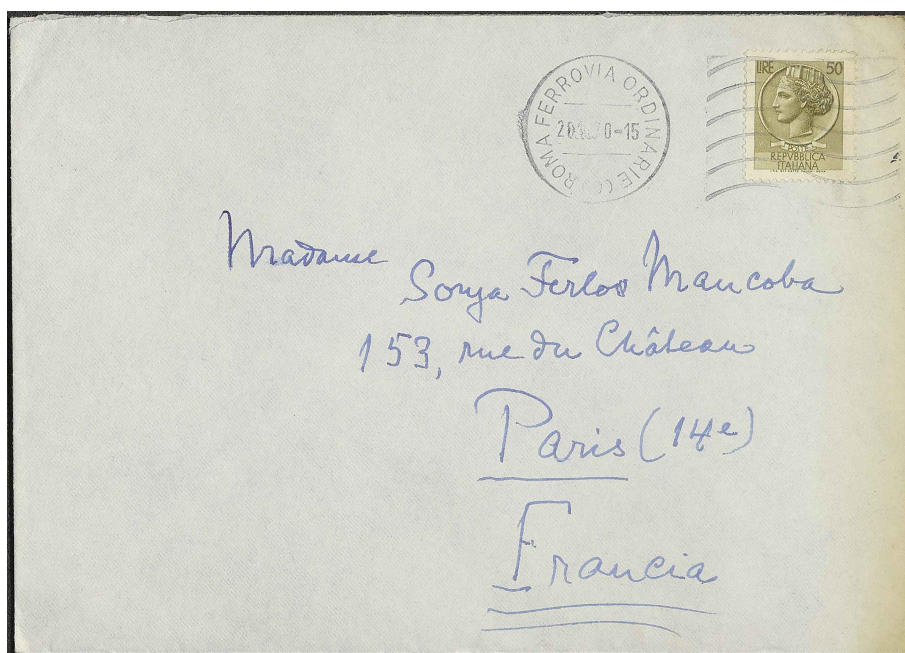 ROMA FERROVIA ORDINARIE
70-15
LIRE 50
POSTE
REPVBBLICA
ITALIANA
Madame
Sonja Ferlov Mancoba
153, rue du Château
Paris (14e)
Francia